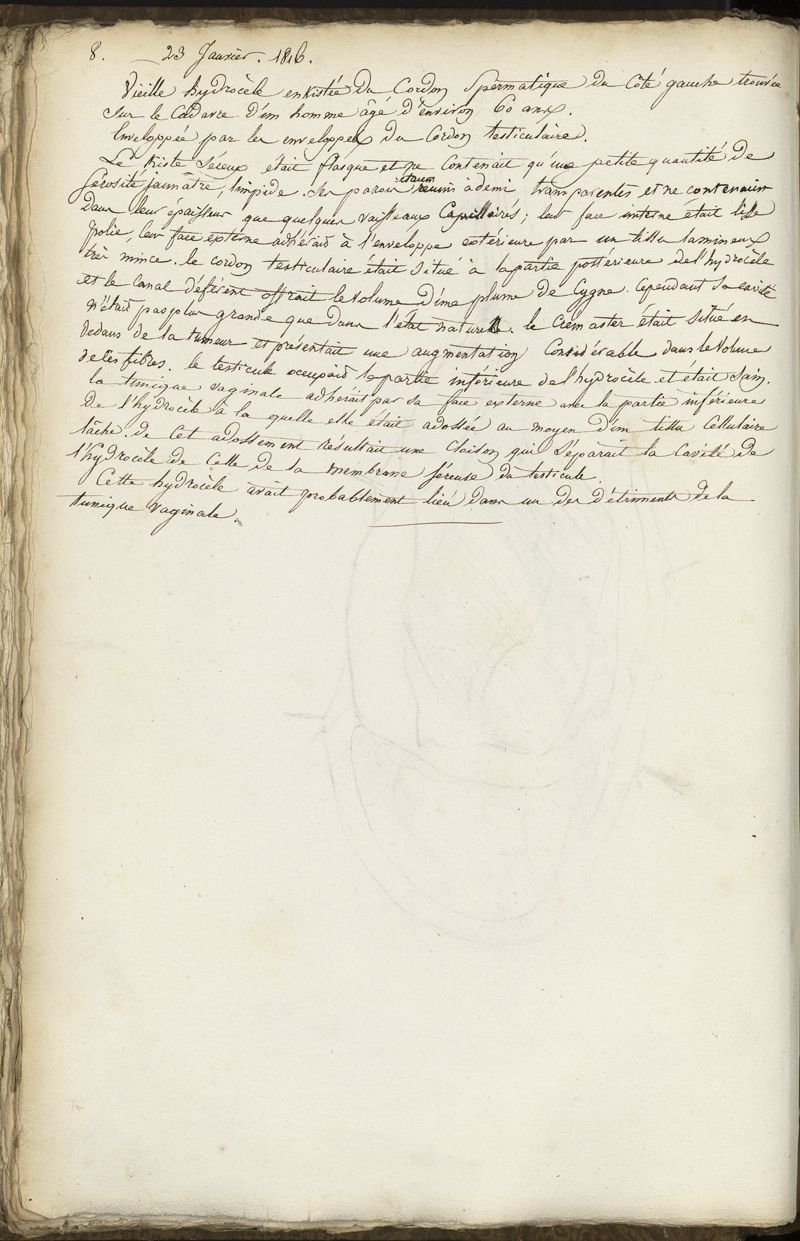 8. 23 Janvier. 1816.
Vieille hydrocèle enkistée du Cordon Spermatique du Côté gauche trouvée
sur le Cadavre d'un homme âgé d'environ 60 ans.
Enveloppée par les enveloppes du Cordon testiculaire.
Le Kiste Séreux était flasque et ne Contenait qu'une petite quantité de
Sérosité jaunâtre, limpide. Ses parois étaient à demi transparentes et ne contenoient
dans leur épaisseur que quelques vaisseaux Capillaires; leur face interne était lisse
polie, leur face externe adhéroit à l'enveloppe extérieure par un tissu lamineux
très mince. le cordon testiculaire était situé à la partie postérieure de l'hydrocèle
et le Canal déférent offrait le Volume d'une plume de Cygne. Cependant Sa cavité
n'était pas plus grande que dans l'état naturel. le Crémaster était situé en
dedans de la tumeur et présentait une augmentation Considérable dans le Volume
de ses fibres. le testicule occupoit la partie inférieure de l'hydrocèle et était Sain.
la tunique vaginale adhérait par sa face externe avec la partie inférieure
de l'hydrocèle à la quelle elle était adossée au moyen d'un tissu Cellulaire
lâche. de Cet adossement résultait une Cloison qui Séparait la Cavité de
l'hydrocèle de Celle de la membrane séreuse du testicule.
Cette hydrocèle avait probablement lieu dans un des détriments de la
tunique vaginale.